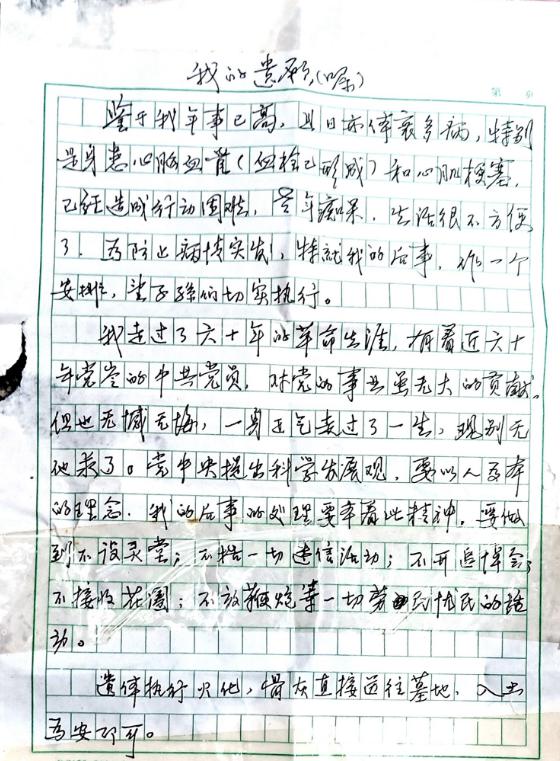 我的遗愿(嘱)
鉴于我年事已高，近日亦体衰多病，特别
是身患心脑血管(血栓已形成)和心肌梗塞，
已经造成行动困难，老年痴呆，生活很不方便
了．为防止病情突发，特就我的后事，作一个
安排，望子孙们切实执行。
我走过了六十年的革命生涯，有着近六十
年党莹的中共党员，对党的事业虽无大的贡献，
但也无憾无悔，一身正气走过了一生，现别无
他求了。党中央提出科学发展观，要以人为本
的理念．我的后事的处理要本着此精神，要做
到不设灵堂；不搞一切迷信活动；不开追悼会；
不接收花圈；不放鞭炮等一切劳民忧民的活
动。
遗体执行火化，骨灰直接送往墓地，入土
为安即可。